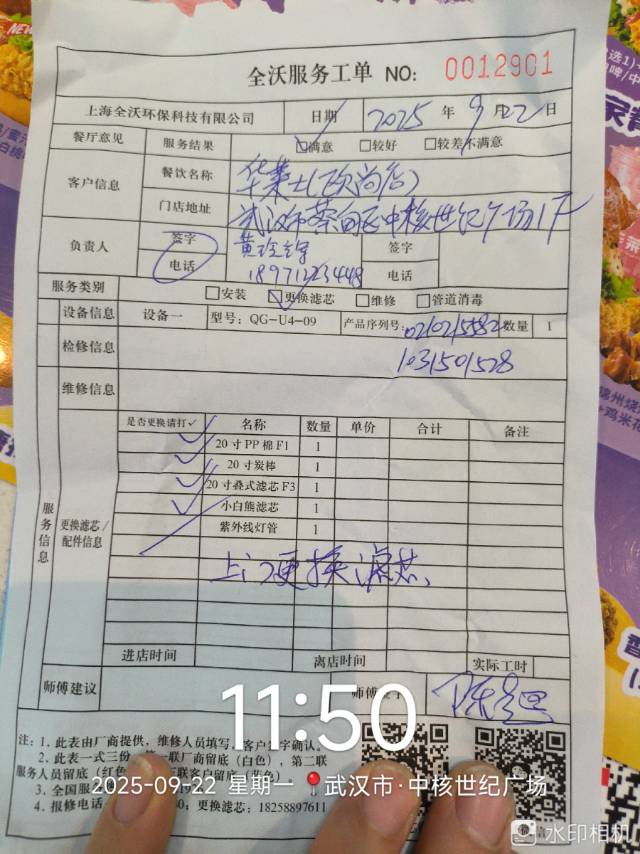 全沃服务工单 NO: 0012901
上海全沃环保科技有限公司 日期 2025 年 9 月 22 日
餐厅意见 服务结果 ☑满意 □较好 □较差不满意
客户信息 餐饮名称 华莱士(欧尚店)
门店地址 武汉市蔡甸区中核世纪广场1F
负责人 签字 签字
电话 18971223448 电话
服务类别 □安装 ☑更换滤芯 □维修 □管道消毒
设备信息 设备一 型号: QG-U4-09 产品序列号: 0210215582 数量 1
1031501528
检修信息
维修信息
服务信息
更换滤芯/配件信息
是否更换请打✓ 名称 数量 单价 合计 备注
✓ 20 寸 PP 棉 F1 1
✓ 20 寸炭棒 1
✓ 20 寸叠式滤芯 F3 1
✓ 小白熊滤芯 1
紫外线灯管 1
上门更换滤芯
进店时间 离店时间 实际工时
师傅建议 师傅
11:50
注: 1. 此表由厂商提供, 维修人员填写, 客户签字确认。
2. 此表一式三份, 第一联厂商留底(白色), 第二联
服务人员留底(红色 联客户留底(黄色)。
3. 全国服
2025-09-22 星期一 武汉市·中核世纪广场
4. 报修电话 70; 更换滤芯: 18258897611
水印相机